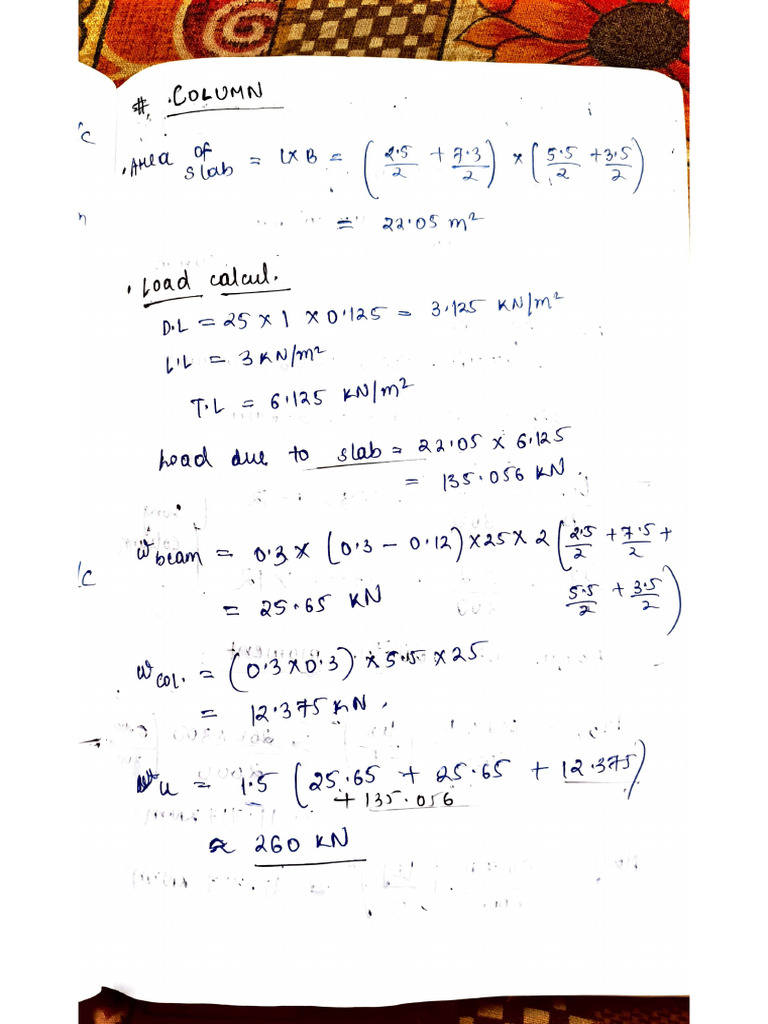 # . COLUMN
. Area of slab = L x B = (2.5/2 + 7.3/2) x (5.5/2 + 3.5/2)
= 22.05 m²
. Load calcul.
D.L = 25 x 1 x 0.125 = 3.125 KN/m²
L.L = 3 KN/m²
T.L = 6.125 KN/m²
Load due to slab = 22.05 x 6.125
= 135.056 KN.
W beam = 0.3 x (0.3 - 0.12) x 25 x 2 (2.5/2 + 7.5/2 +
5.5/2 + 3.5/2)
= 25.65 KN
W COL. = (0.3 x 0.3) x 5.5 x 25
= 12.375 KN.
u = 1.5 (25.65 + 25.65 + 12.375)
+ 135.056
≈ 260 KN